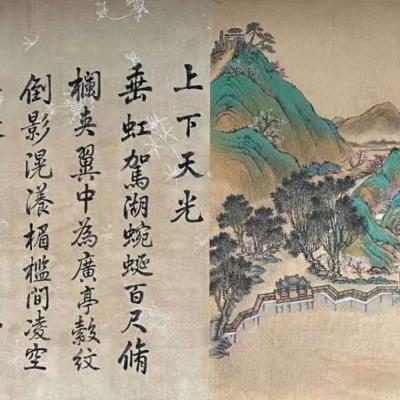 上下天光
垂虹駕湖蜿蜒百尺脩
欄夾翼中為廣亭縠紋
倒影滉漾楣檻間凌空